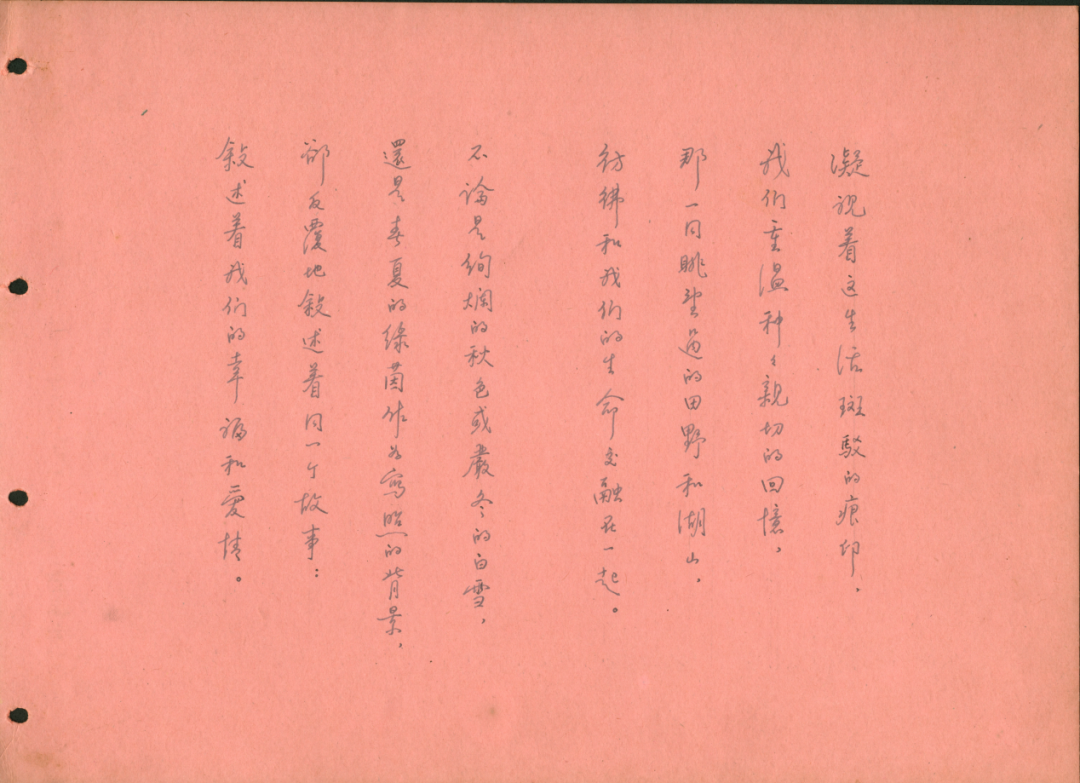 凝视着这生活斑駁的痕印，
我们重温种々親切的回憶，
那一同眺望过的田野和湖山，
彷彿和我们的生命交融在一起。
不論是絢斕的秋色或嚴冬的白雪，
還是春夏的绿茵作为寫照的背景，
都反覆地敍述着同一个故事：
敍述着我们的幸福和爱情。